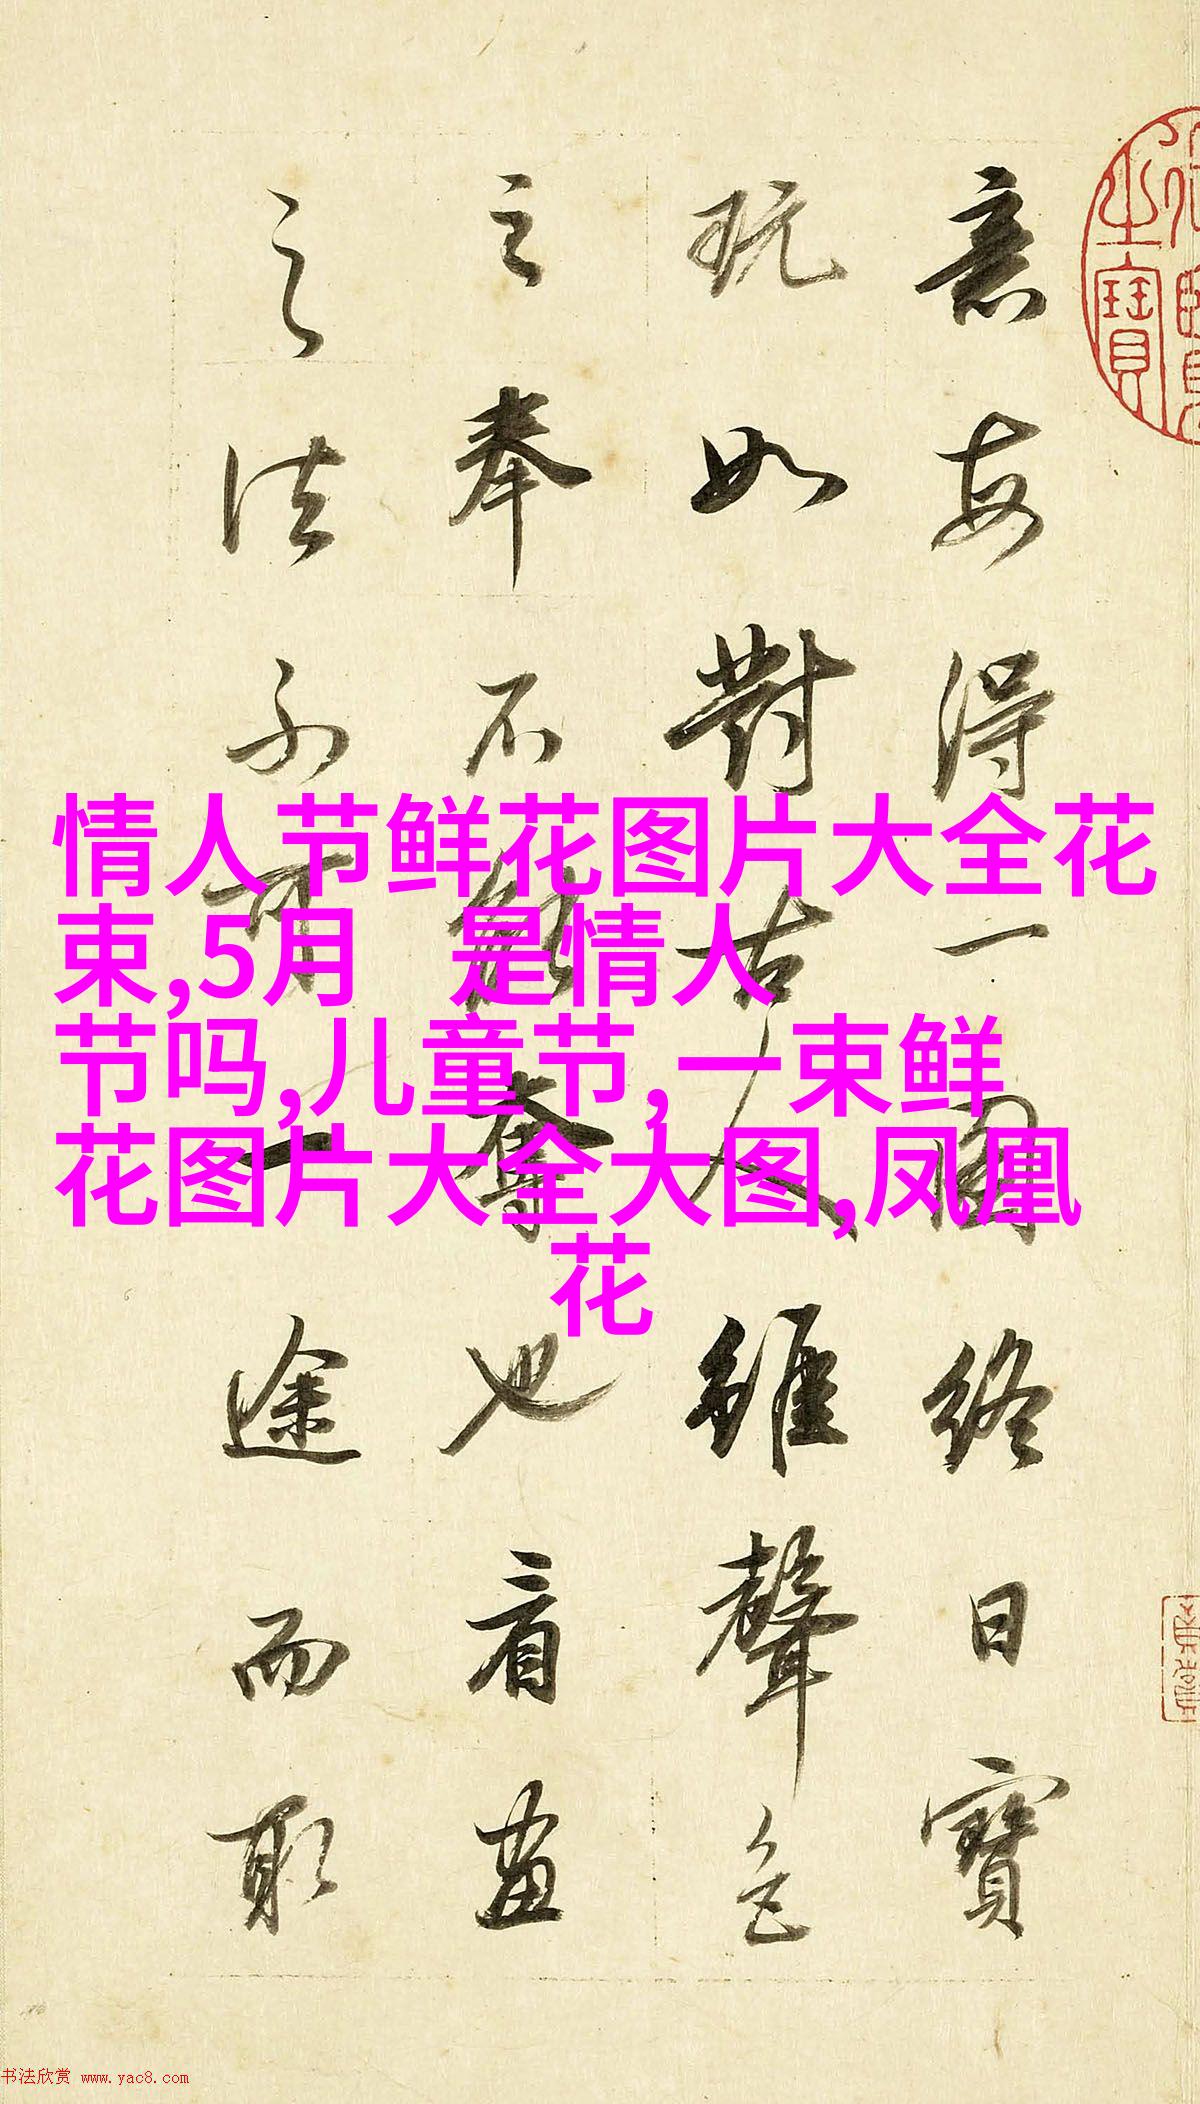 意每得一圖終日寶
玩如對古人雖聲色
之奉不能奪也看畫
之法不可一途而取
情人节鲜花图片大全花
束,5月 是情人
节吗,儿童节,一束鲜
花图片大全大图,凤凰
花
之寶
书法欣赏 www.yac8.com